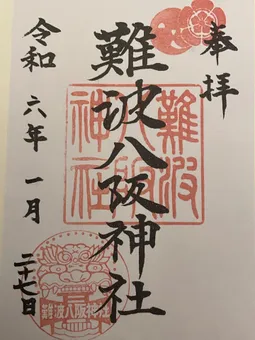 奉拝
難波八阪神社
令和六年一月二十七日
難波八阪神社
難波八阪神社